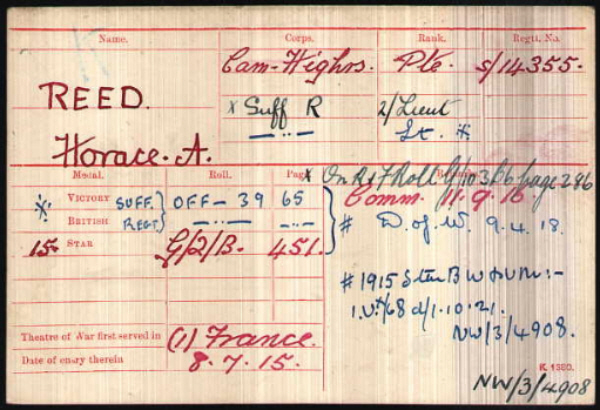 Name. Corps. Rank. Regtl. No.
Cam-Highrs. Pte. S/14355.
REED. X Suff R 2/Lieut
—..— Lt. #
Horace. A.
Medal. Roll. Page X On R & F Roll G/103B6 page 286
X. VICTORY SUFF. OFF-39 65 Comm. 11.9.16
BRITISH REGT. —..— —..— # D. of W. 9.4.18.
15 STAR G/2/B. 451.
# 1915 Star B W & V M :-
I.V./68 d/1.10.21.
NW/3/4908.
Theatre of War first served in (1) France.
Date of entry therein 8.7.15.
K. 1380.
NW/3/4908